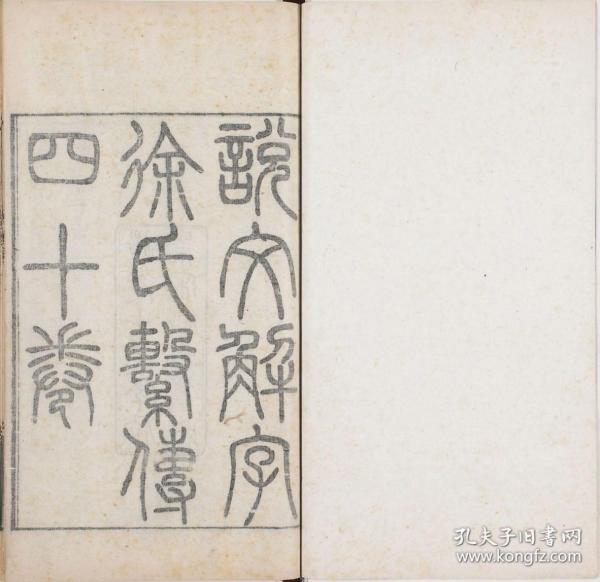 說文解字
徐氏繫傳
四十卷
孔夫子旧书网
www.kongfz.com